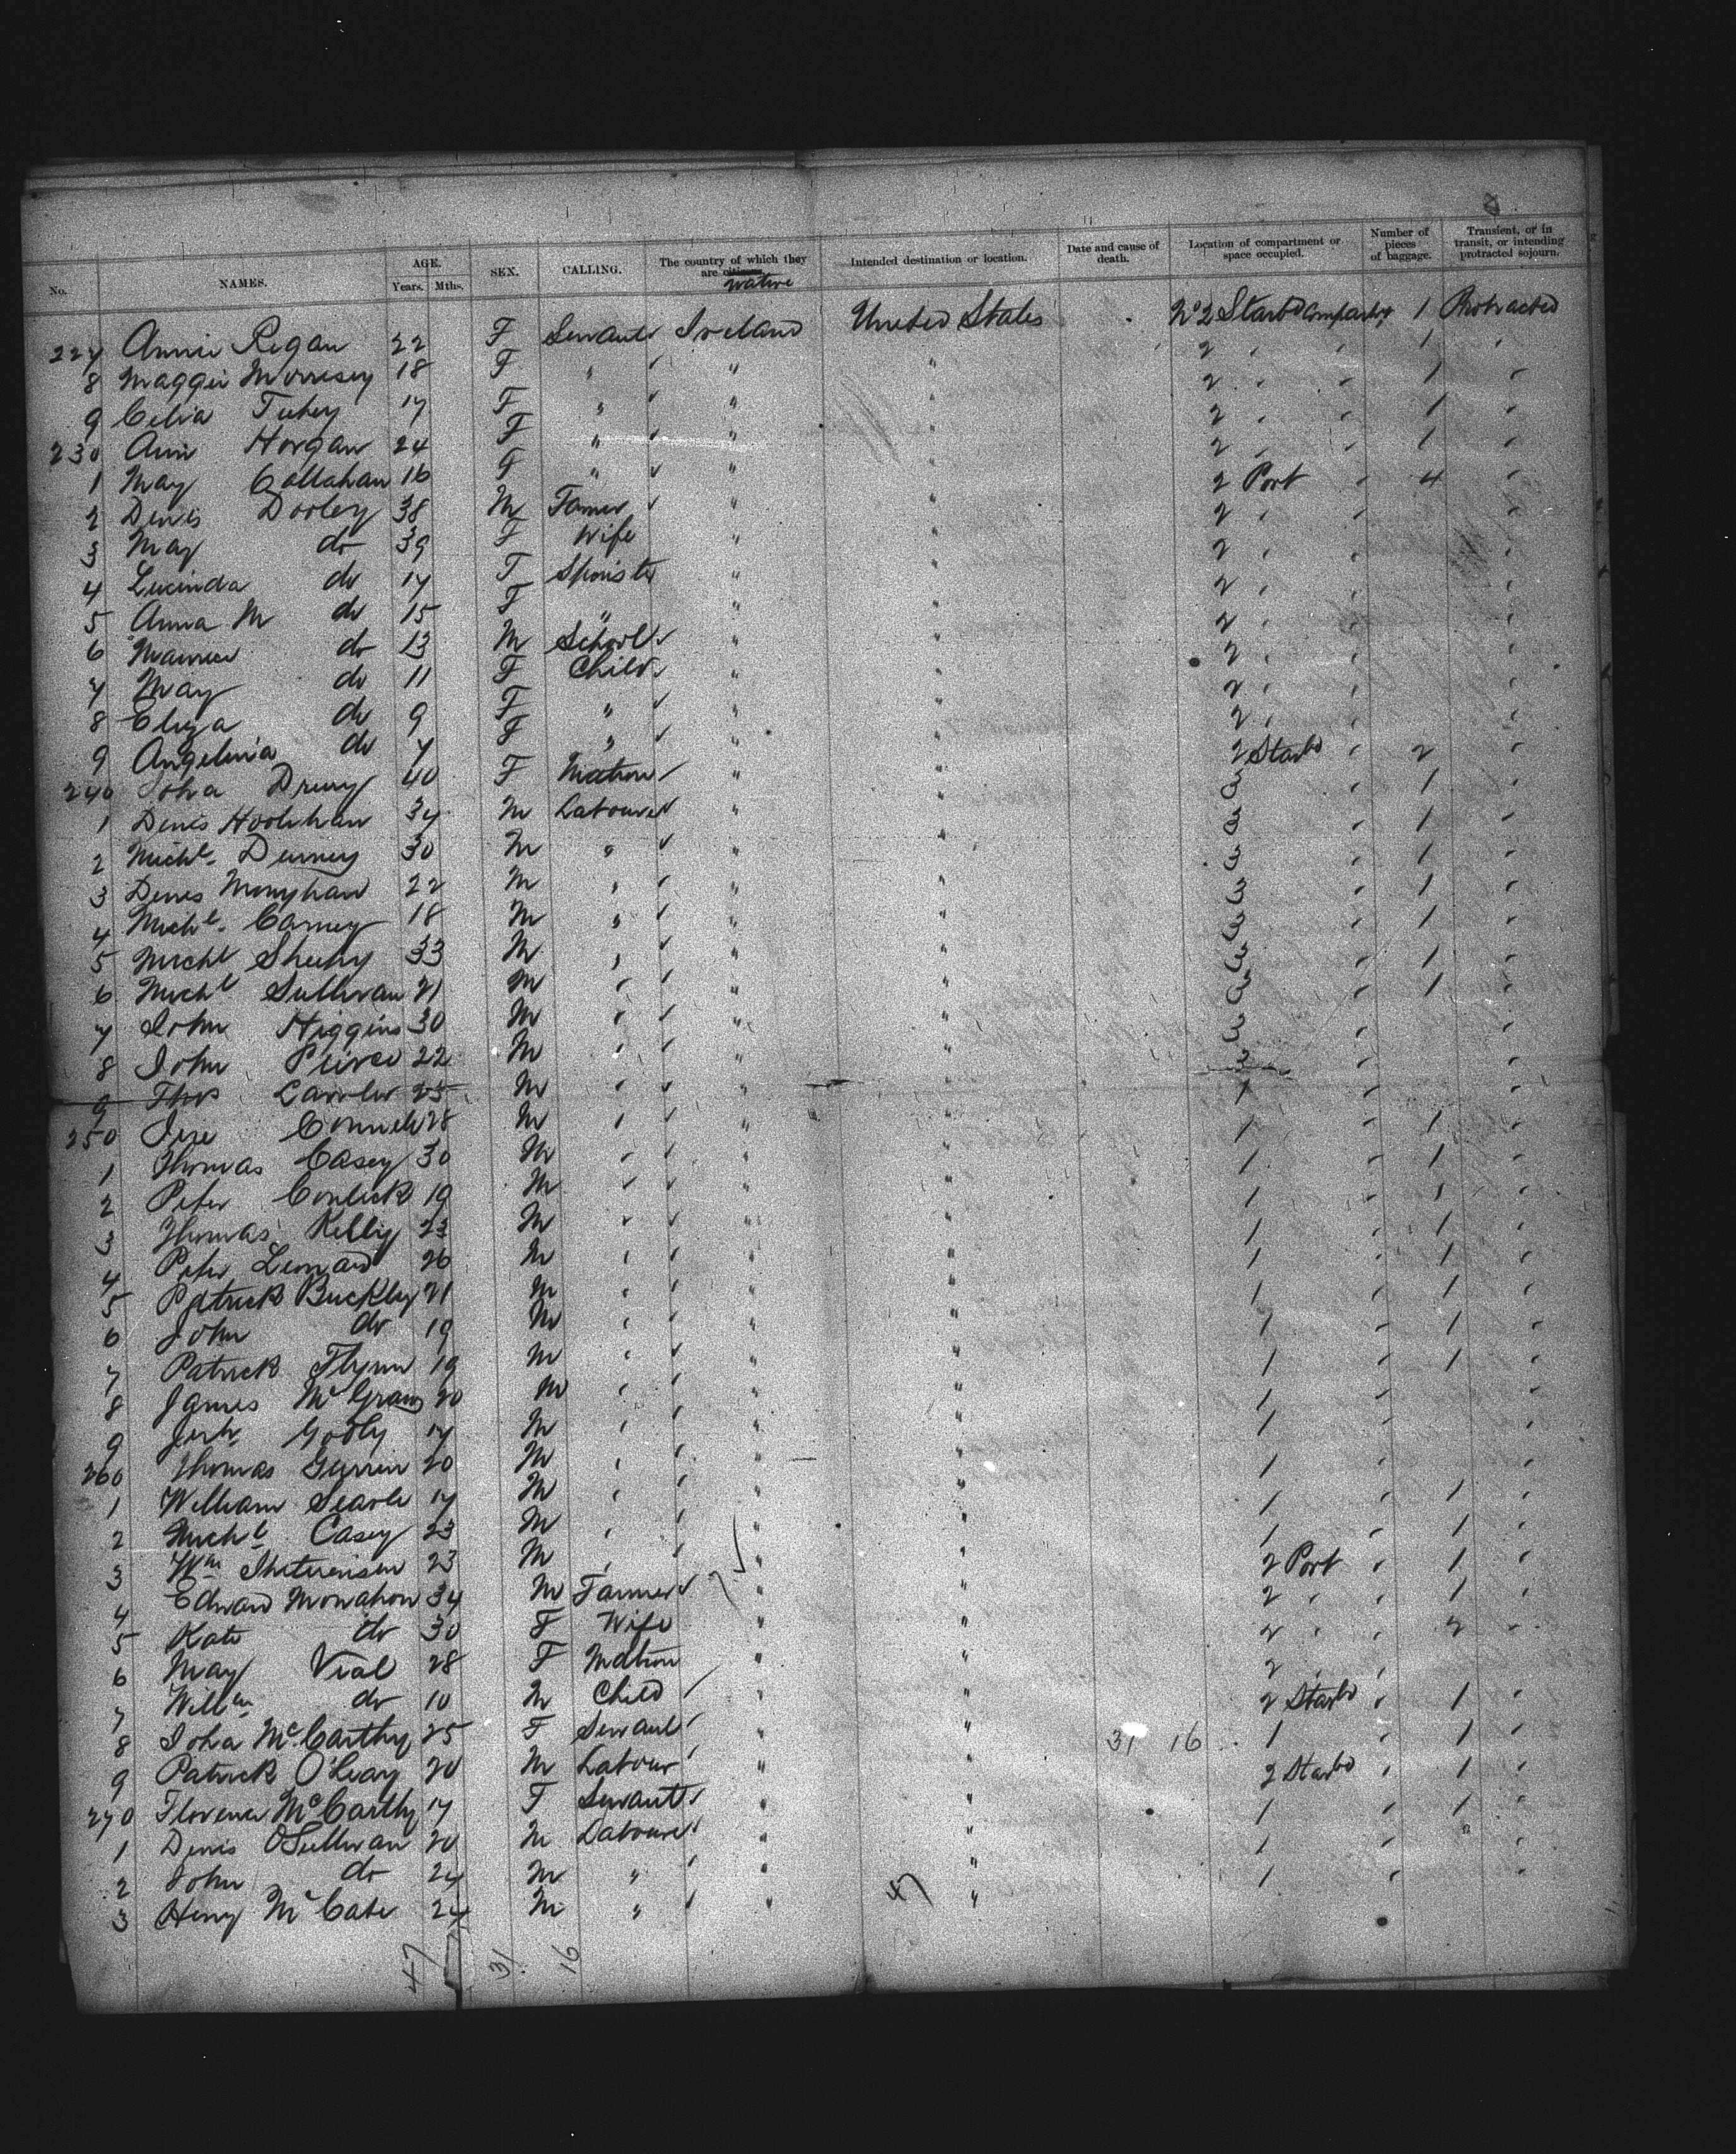 No. NAMES. AGE. Years. Mths. SEX. CALLING. The country of which they are citizens, native Intended destination or location. Date and cause of death. Location of compartment or space occupied. Number of pieces of baggage. Transient, or in transit, or intending protracted sojourn.
227 Annie Regan 22 F Servant Ireland United States No 2 Starbd Compartmt 1 Protracted
8 Maggie Morrisey 18 F " " " 2 " " 1 "
9 Celia Tuhey 17 F " " " 2 " " 1 "
230 Ann Horgan 24 F " " " 2 " " 1 "
1 May Callahan 16 F " " " 2 " " 1 "
2 Denis Dooley 38 M Farmer " " 2 Port " 4 "
3 May do 39 F Wife " " 2 " " "
4 Lucinda do 17 F Spinster " " 2 " " "
5 Anna M do 15 F " " " 2 " " "
6 Maurice do 13 M School " " 2 " " "
7 May do 11 F Child " " 2 " " "
8 Eliza do 9 F " " " 2 " " "
9 Angelina do 7 F " " " 2 " " "
240 Joha Drury 40 F Matron " " 2 Starbd " 2 "
1 Denis Hoolihan 34 M Labourer " " 1 "
2 Michl Denney 30 M " " " " 1 "
3 Denis Monyhan 22 M " " " " 1 "
4 Michl Carney 18 M " " " " 1 "
5 Michl Sheehy 33 M " " " " 1 "
6 Michl Sullivan 21 M " " " " 1 "
7 John Higgins 30 M " " " " 1 "
8 John Peirce 22 M " " " " "
9 Thos Lawler 25 M " " " " "
250 Connell 28 M " " " 1 " 1 "
1 Thomas Casey 30 M " " " 1 " 1 "
2 Peter Conlick 19 M " " " 1 " 1 "
3 Thomas Kelly 23 M " " " 1 " 1 "
4 Peter Lennard 26 M " " " 1 " 1 "
5 Patrick Buckley 21 M " " " 1 " 1 "
6 John do 19 M " " " 1 " 1 "
7 Patrick Flynn 19 M " " " 1 " 1 "
8 James McGraw 20 M " " " 1 " "
9 Jerh Godly 17 M " " " 1 " "
260 Thomas Guerrin 20 M " " " 1 " "
1 William Searle 17 M " " " 1 " 1 "
2 Michl Casey 23 M " " " 1 " 1 "
3 Wm 23 M " " " 2 Port " 1 "
4 Edward Monahon 34 M Farmer " " 2 " " 1 "
5 Kate do 30 F Wife " " 2 " " 2 "
6 May Vial 28 F Matron " " 2 " "
7 Willm do 10 M Child " " 2 Starbd " 1 "
8 Joha McCarthy 25 F Servant " " 31 16 1 1 "
9 Patrick O'Leary 20 M Labour " " 2 Starbd " 1 "
270 Florence McCarthy 17 F Servant " " 1 " 1 "
1 Denis O'Sullivan 20 M Labourer " " 1 " "
2 John do 24 M " " " 1 " "
3 Henry McCabe 24 M " " "
47 31 16 47